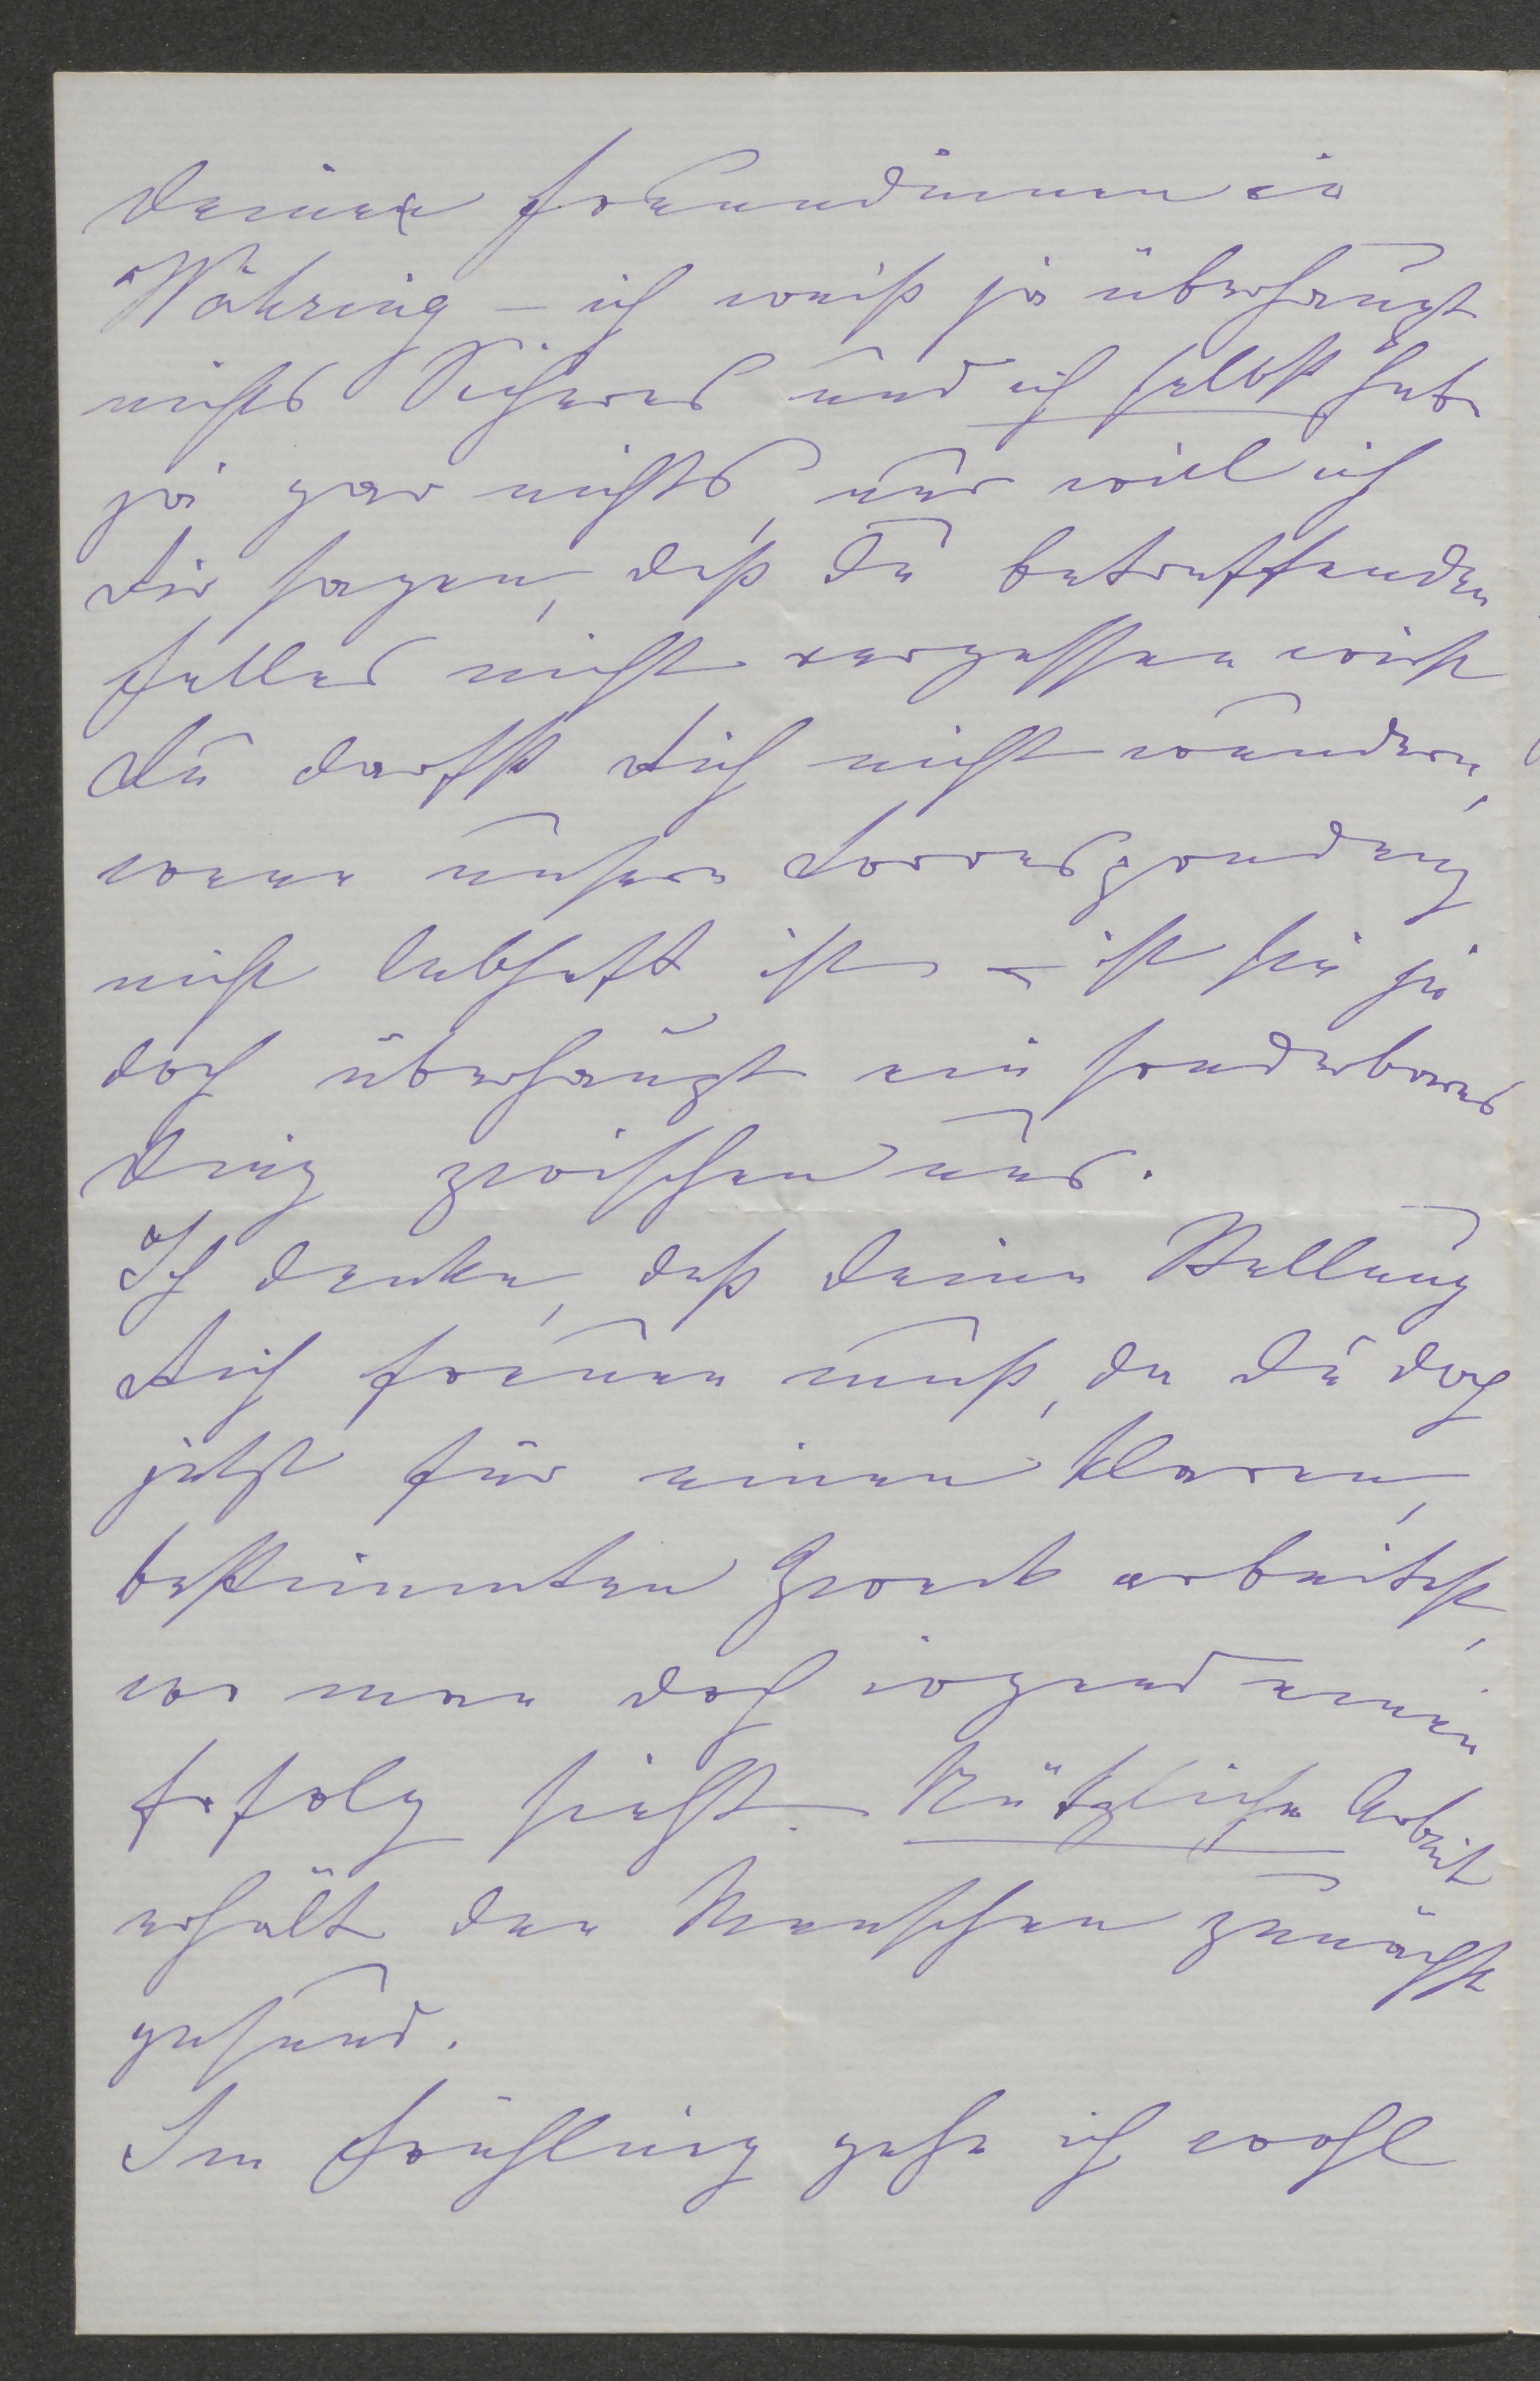 Deinen Freundinnen in
Währing – ich weiß ja überhaupt
nichts Sicheres und ich selbst hab
ja gar nichts, nur will ich
Dir sagen, daß Du betreffenden
Falles nicht vergessen wirst
Du darfst Dich nicht wundern,
wenn unsere Correspondenz
nicht lebhaft ist – ist sie ja
doch überhaupt ein sonderbares
Ding zwischen uns.
Ich denke, daß Deine Stellung
Dich freuen muß, da Du doch
jetzt für einen klaren,
bestimmten Zweck arbeitest,
wo man doch irgend einen
Erfolg sieht. Nützliche Arbeit
erhält den Menschen zunächst
gesund.
Im Frühling gehe ich wohl